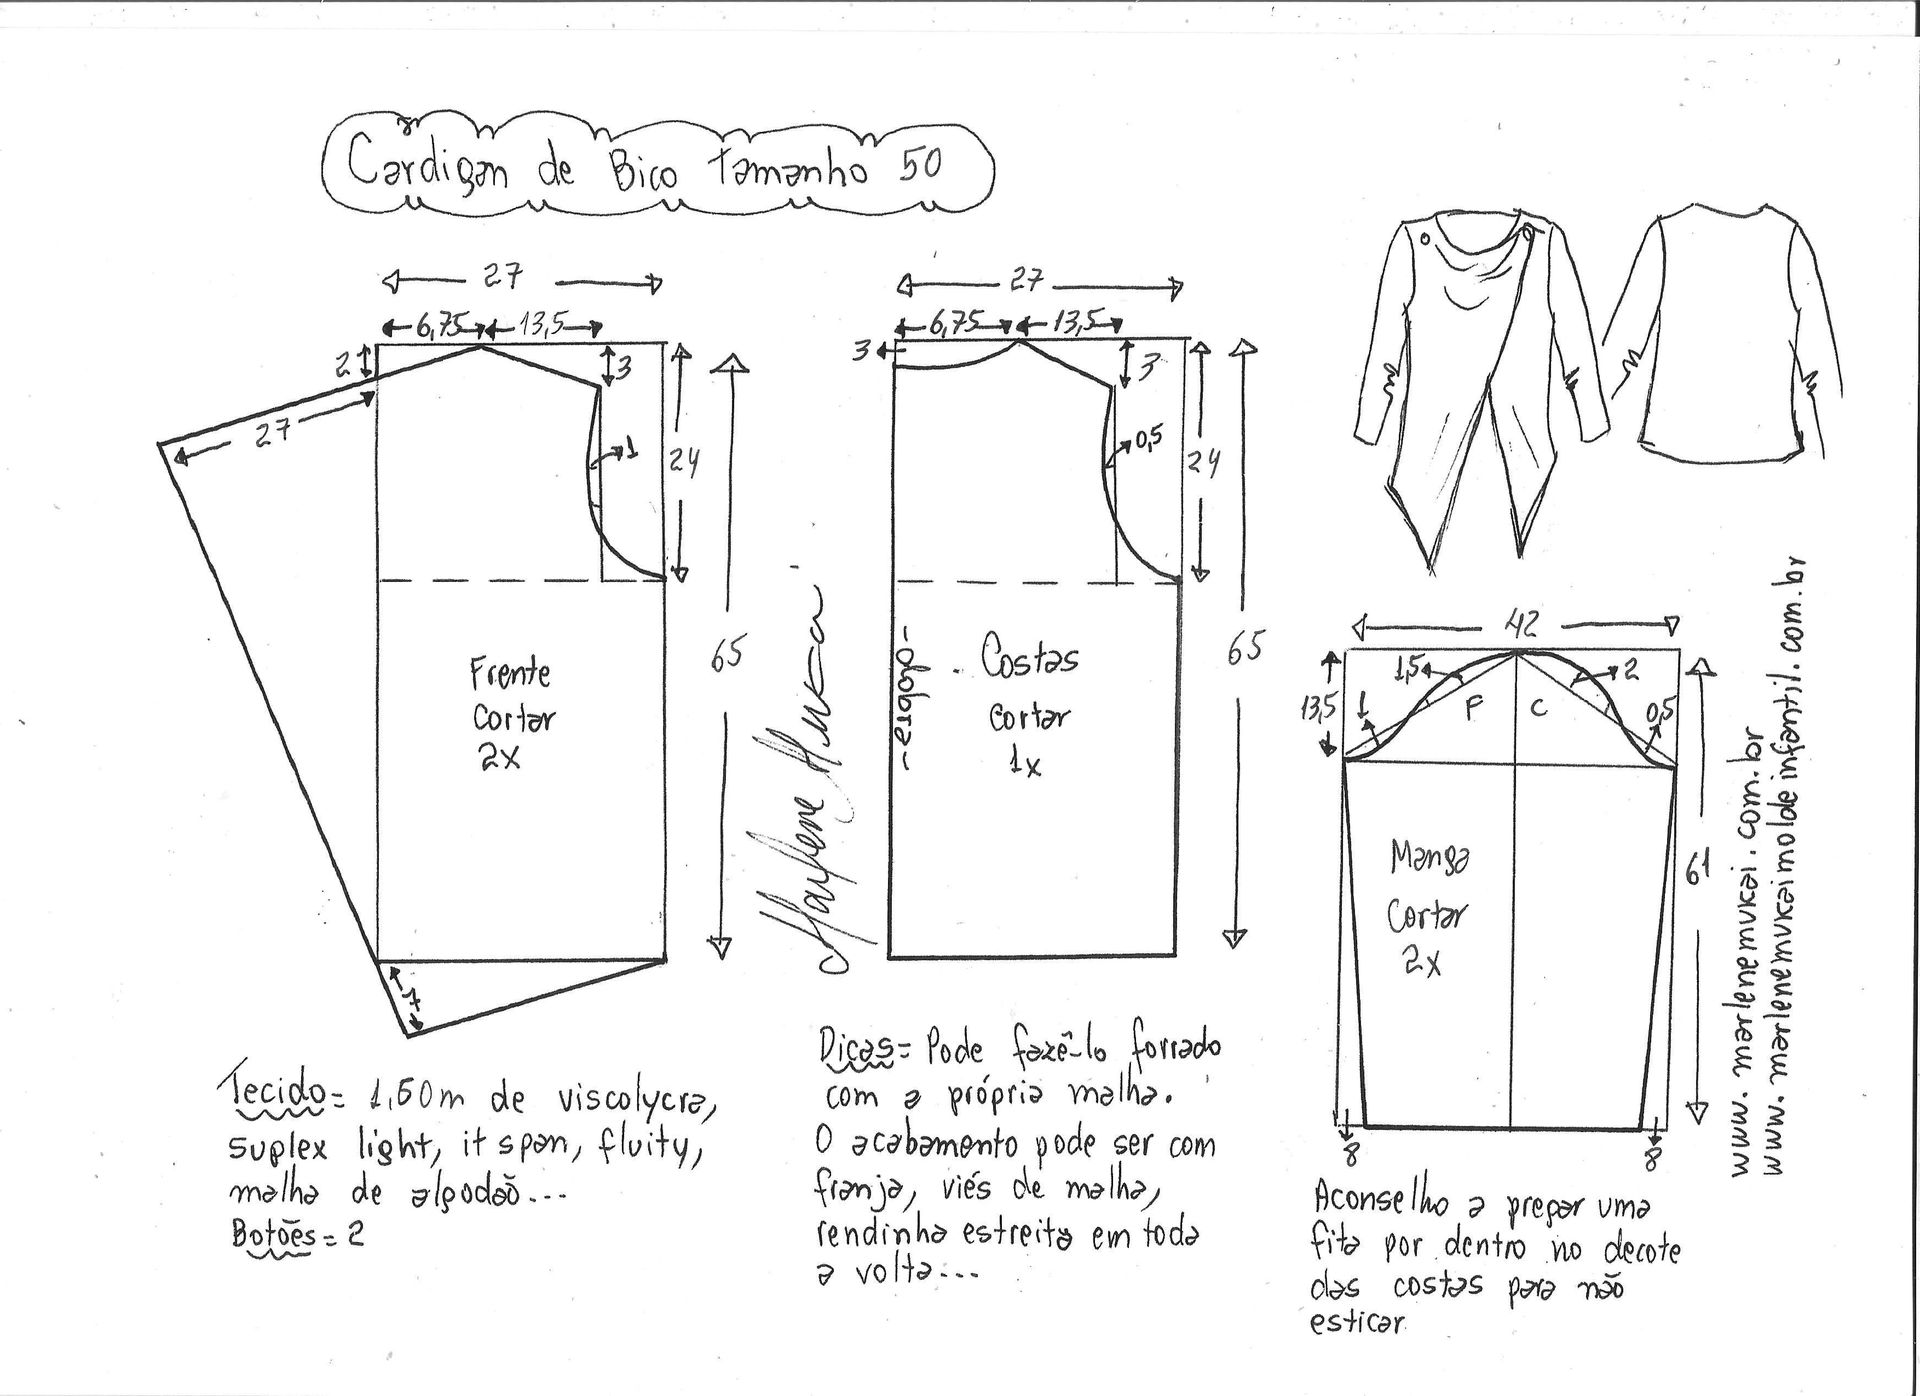 Cardigan de Bico Tamanho 50
27
6,75 13,5
2
3
27
1
24
65
7
Frente
Cortar
2x
27
6,75 13,5
3
3
0,5
24
65
-dobra-
Costas
Cortar
1x
Marlene Mukai
42
13,5
1,5
2
1
F
C
0,5
61
Manga
Cortar
2x
8
8
www.marlenemukai.com.br
www.marlenemukaimoldeinfantil.com.br
Tecido= 1,50m de viscolycra,
suplex light, it span, fluity,
malha de algodão...
Botões= 2
Dicas= Pode fazê-lo forrado
com a própria malha.
O acabamento pode ser com
franja, viés de malha,
rendinha estreita em toda
a volta...
Aconselho a pregar uma
fita por dentro no decote
das costas para não
esticar